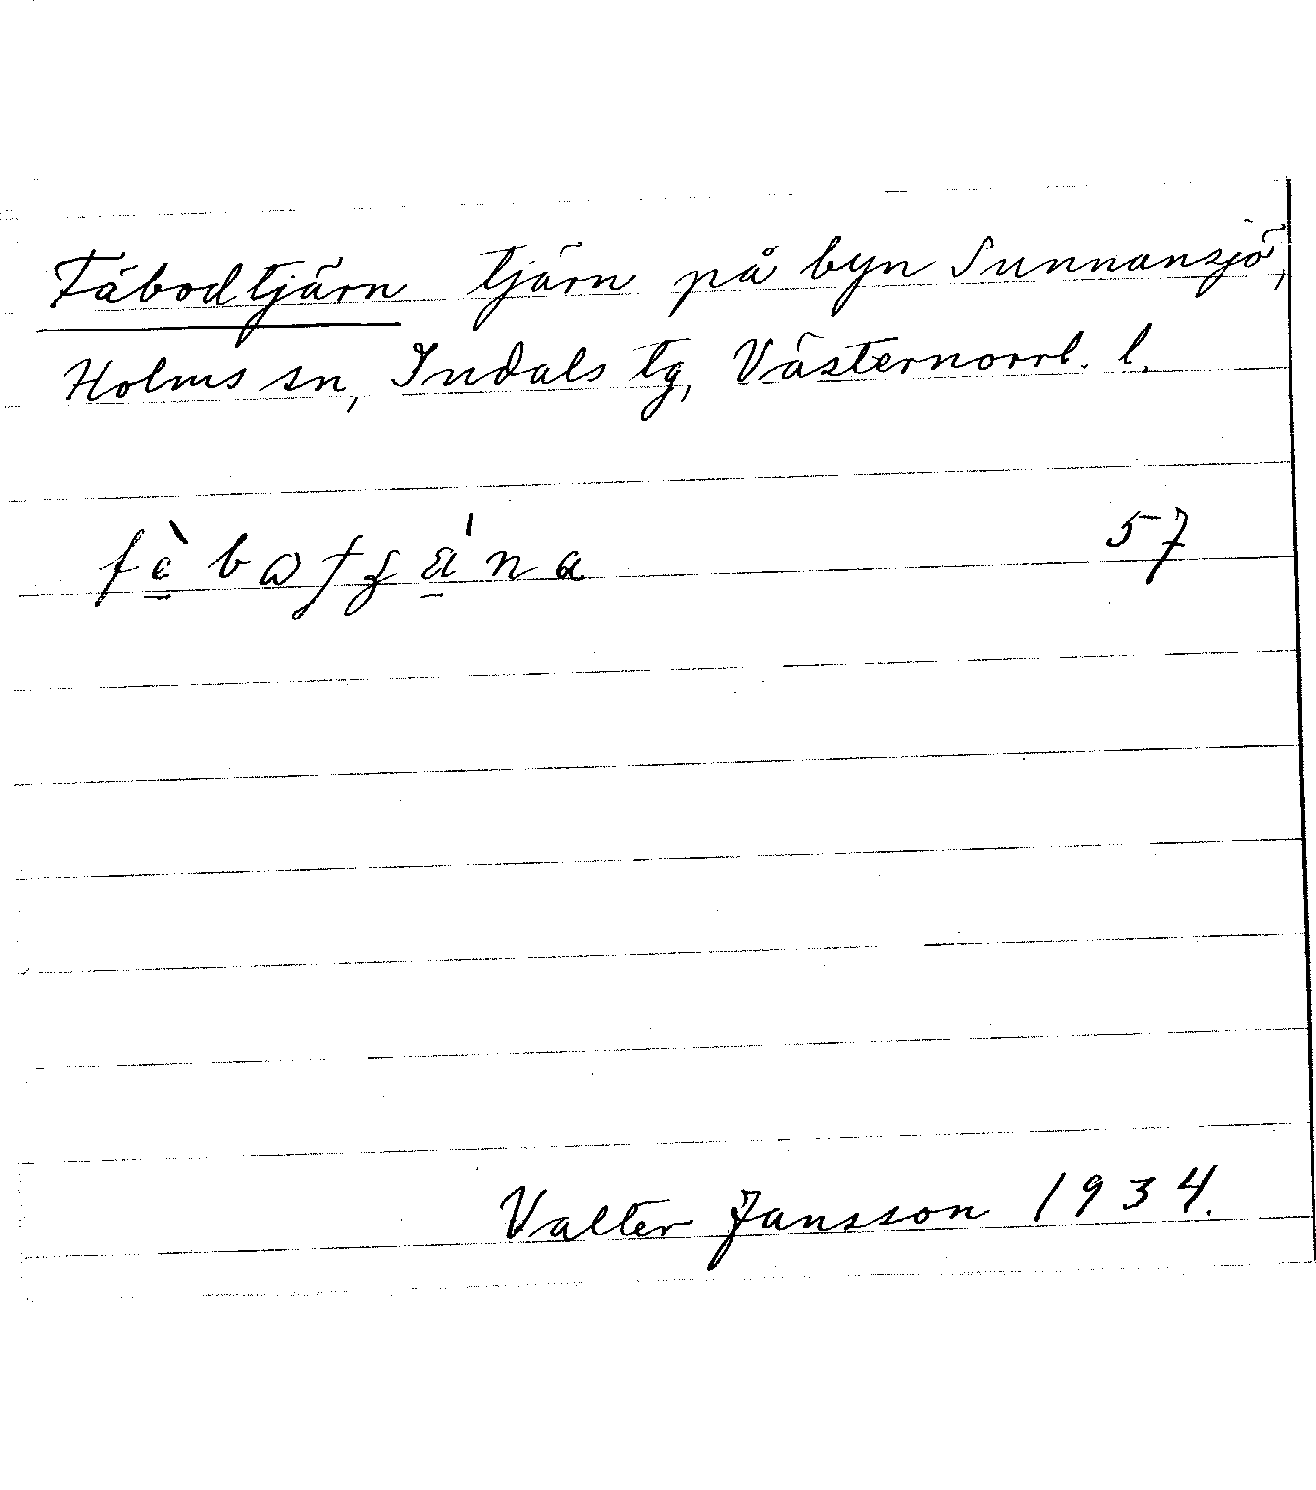 Fäbodtjärn tjärn på byn Sunnansjö,
Holms sn, Indals tg, Västernorrl. l.
57
Valter Jansson 1934.